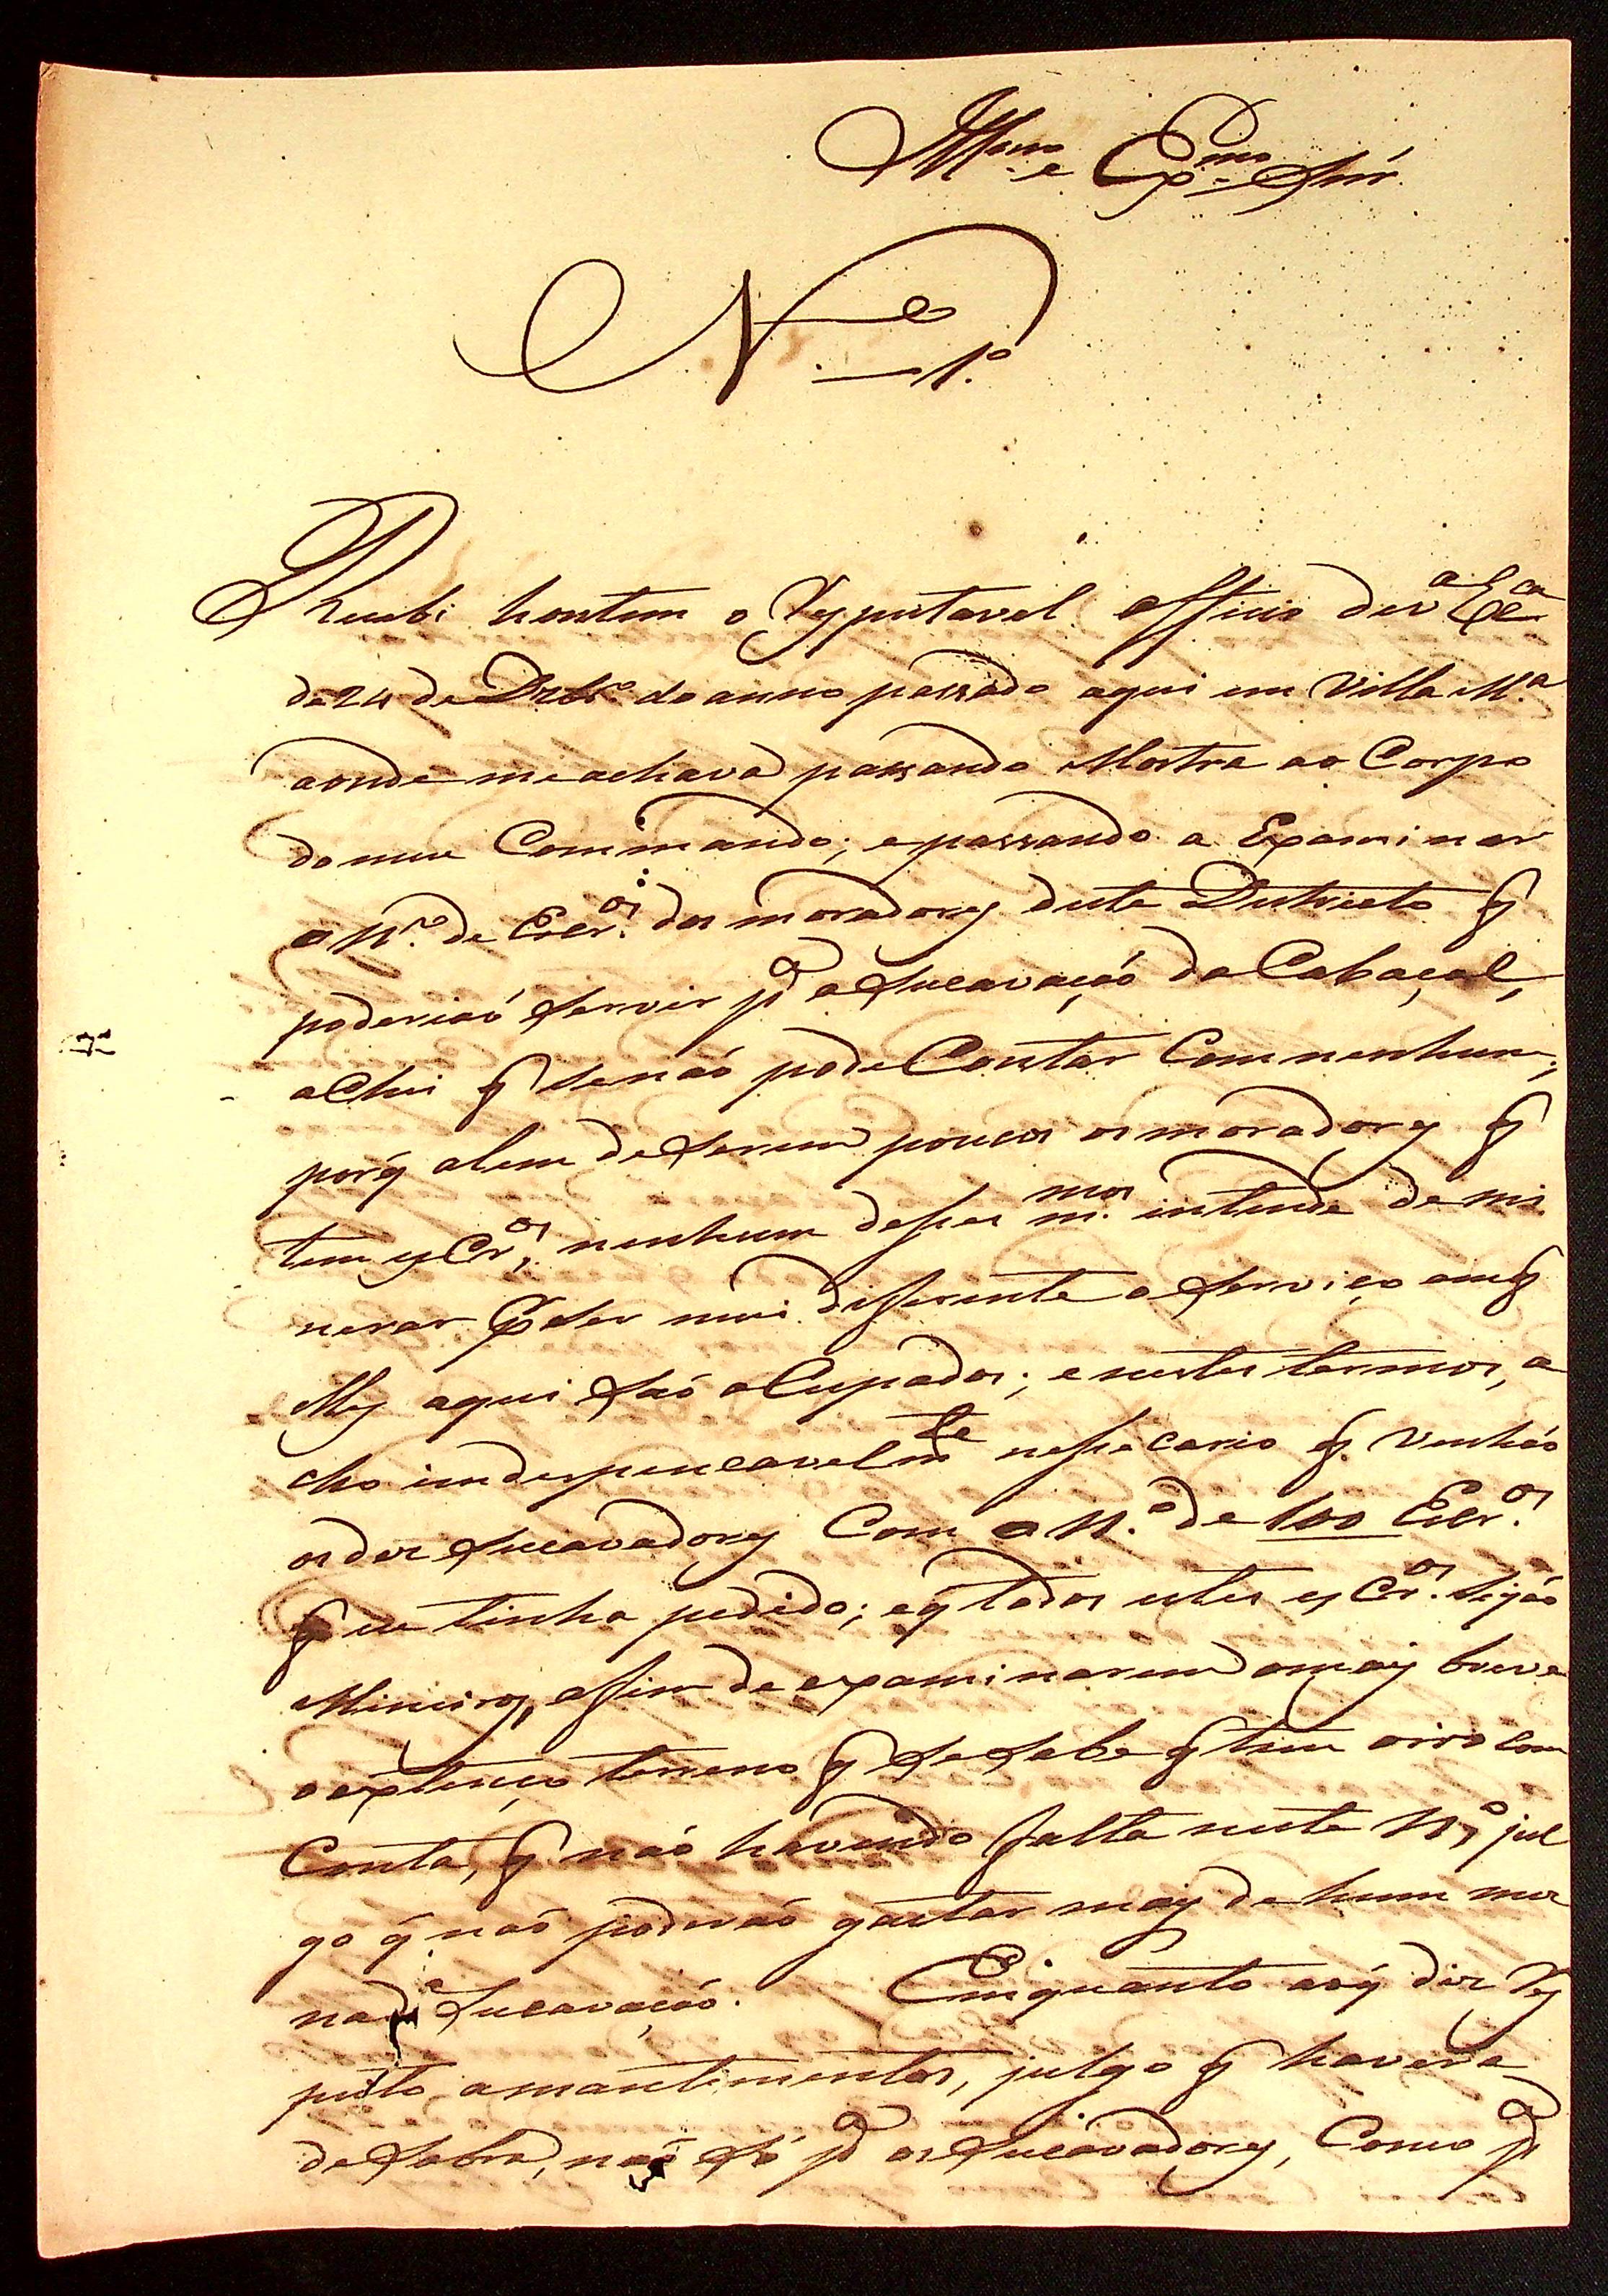 Illmo. e Exmo. Snr.
N. 1.º
Recebi hontem o Respeitavel officio de V.ª Ex.ª
de 24 de Dzbr.º do anno passado aqui em Villa M.ª
aonde me achava passando Mostra ao Corpo
do meu Commando; e passando a Examinar
o N.º de Escr.os dos moradores deste Destricto q
poderiaõ servir p.ª a Sucavaçaõ do Cabaçal,
achei q se naõ pode Contar Com nenhum;
porq alem de serem poucos os moradores q
tem esCr.os, nenhum desses m.mos intende de mi
nerar por ser mui differente o Serviço em q
Elles aqui saõ oCupados; e nestes termos, a
cho indespencavelm.te nessecario q. venhaõ
os dos Sucavadores Com o N.º de 100 Escr.os
q eu tinha pedido; e q todos estes esCr.os sejaõ
Mineiros, afim de examinarem o mais breve
o extenço terreno q se sabe q tem oiro Com
Conta, q naõ havendo falta neste N.º jul
go q naõ poderaõ gastar mais de hum mez
na Sucavaçaõ. Emquanto aoq diz Res
peito amantimentos, julgo q havera
de Sobra, naõ só p.ª os Sucavadores, Como p.ª